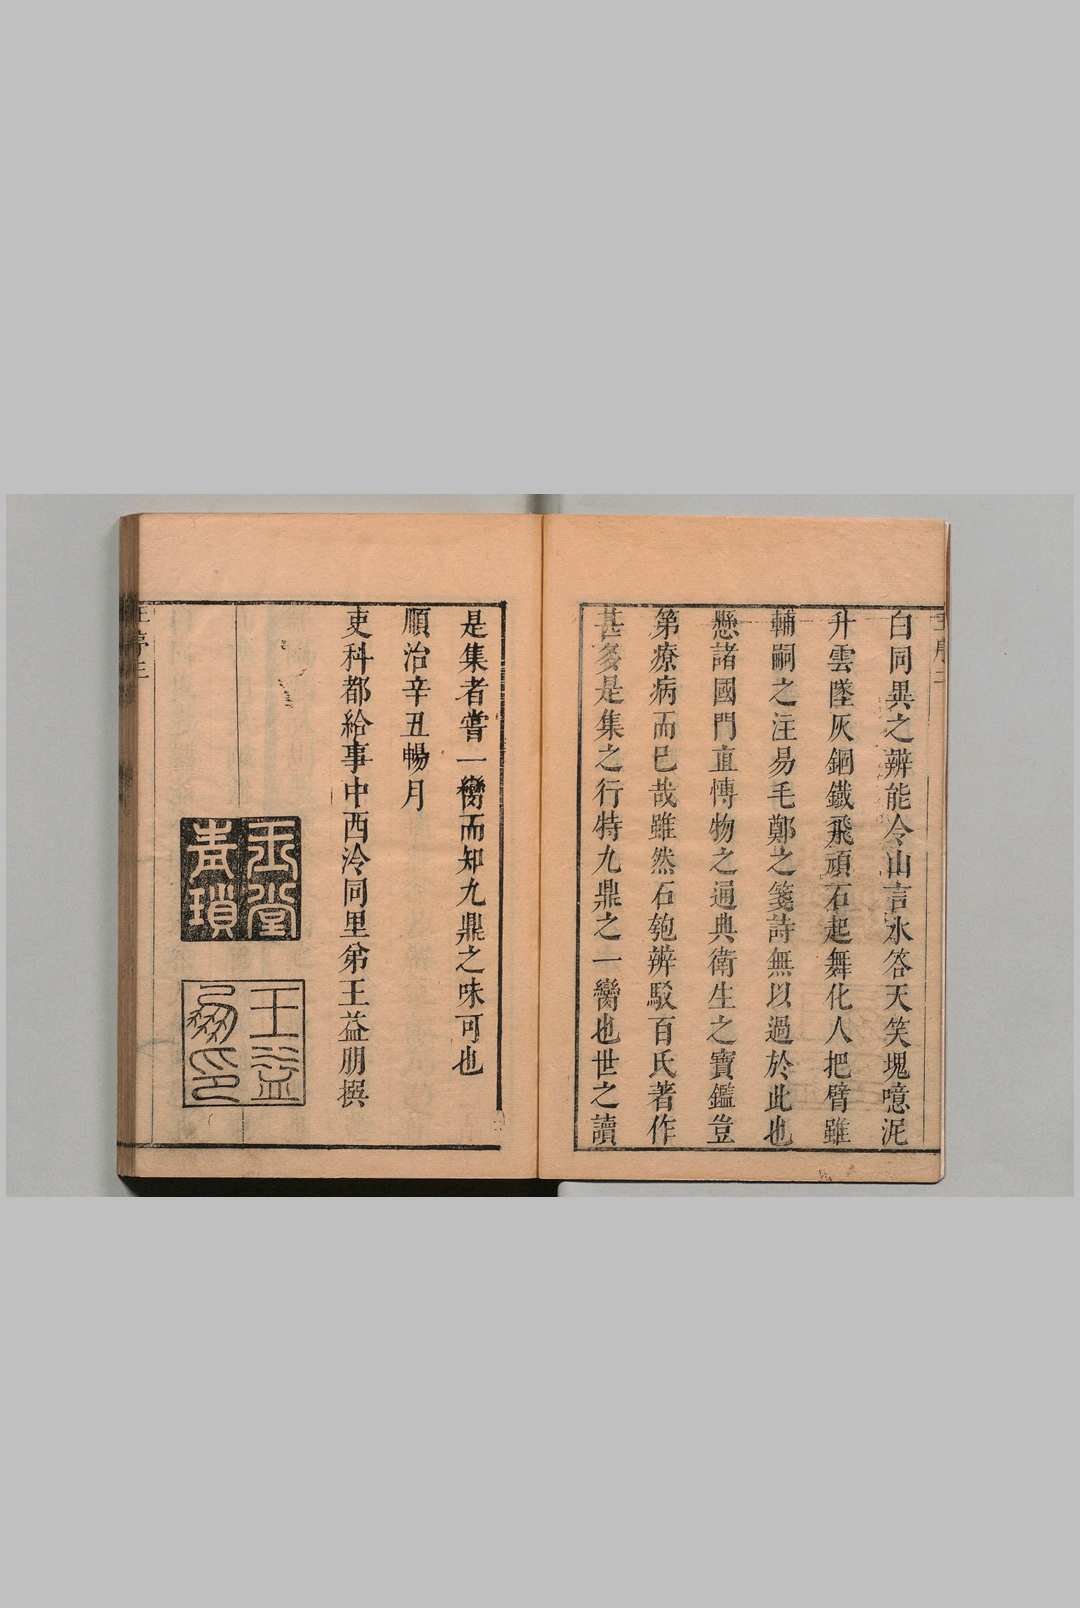 白同異之辨能令山言氷答天笑塊噫泥
升雲墜灰鋼鐵飛頑石起舞化人把臂雖
輔嗣之注易毛鄭之箋詩無以過於此也
懸諸國門直博物之通典衛生之寶鑑豈
第療病而已哉雖然石匏辨駁百氏著作
甚多是集之行特九鼎之一臠也世之讀
是集者嘗一臠而知九鼎之味可也
順治辛丑暢月
吏科都給事中西泠同里弟王益朋撰
玉堂青瑣
王益朋印